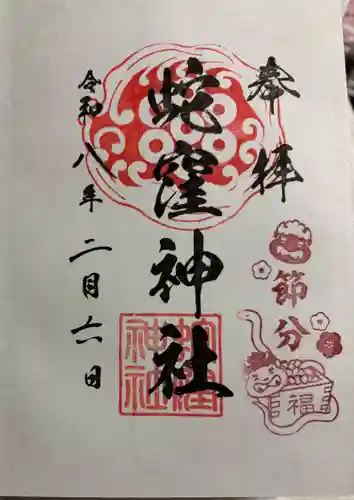 奉拝
節分
福
蛇窪神社
蛇窪神社
令和八年二月六日